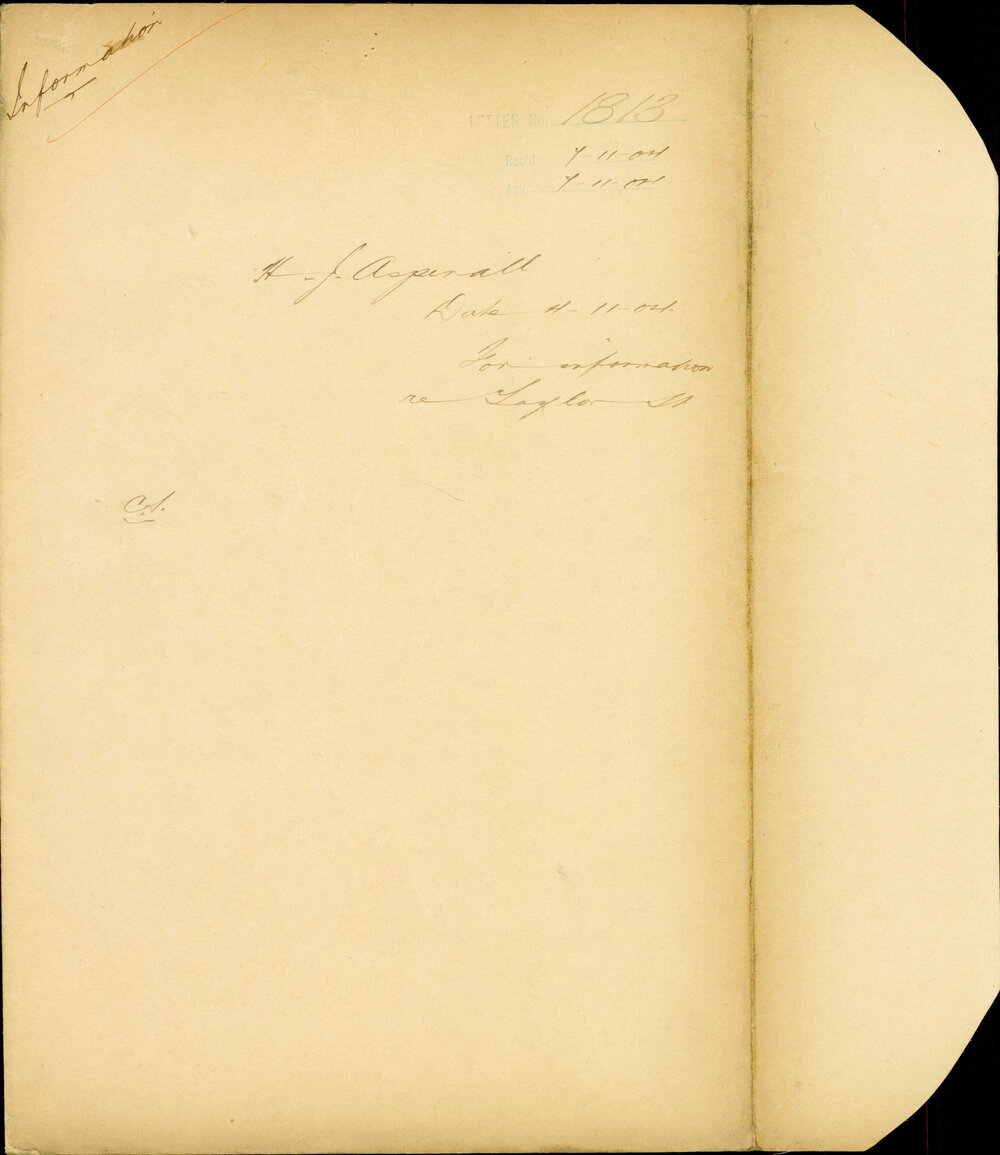 Information
LETTER No. 1813
Rec'd 7-11-04
Ack. 7-11-04
H. J. Aspinall
Date 4-11-04
For information
re Taylor St